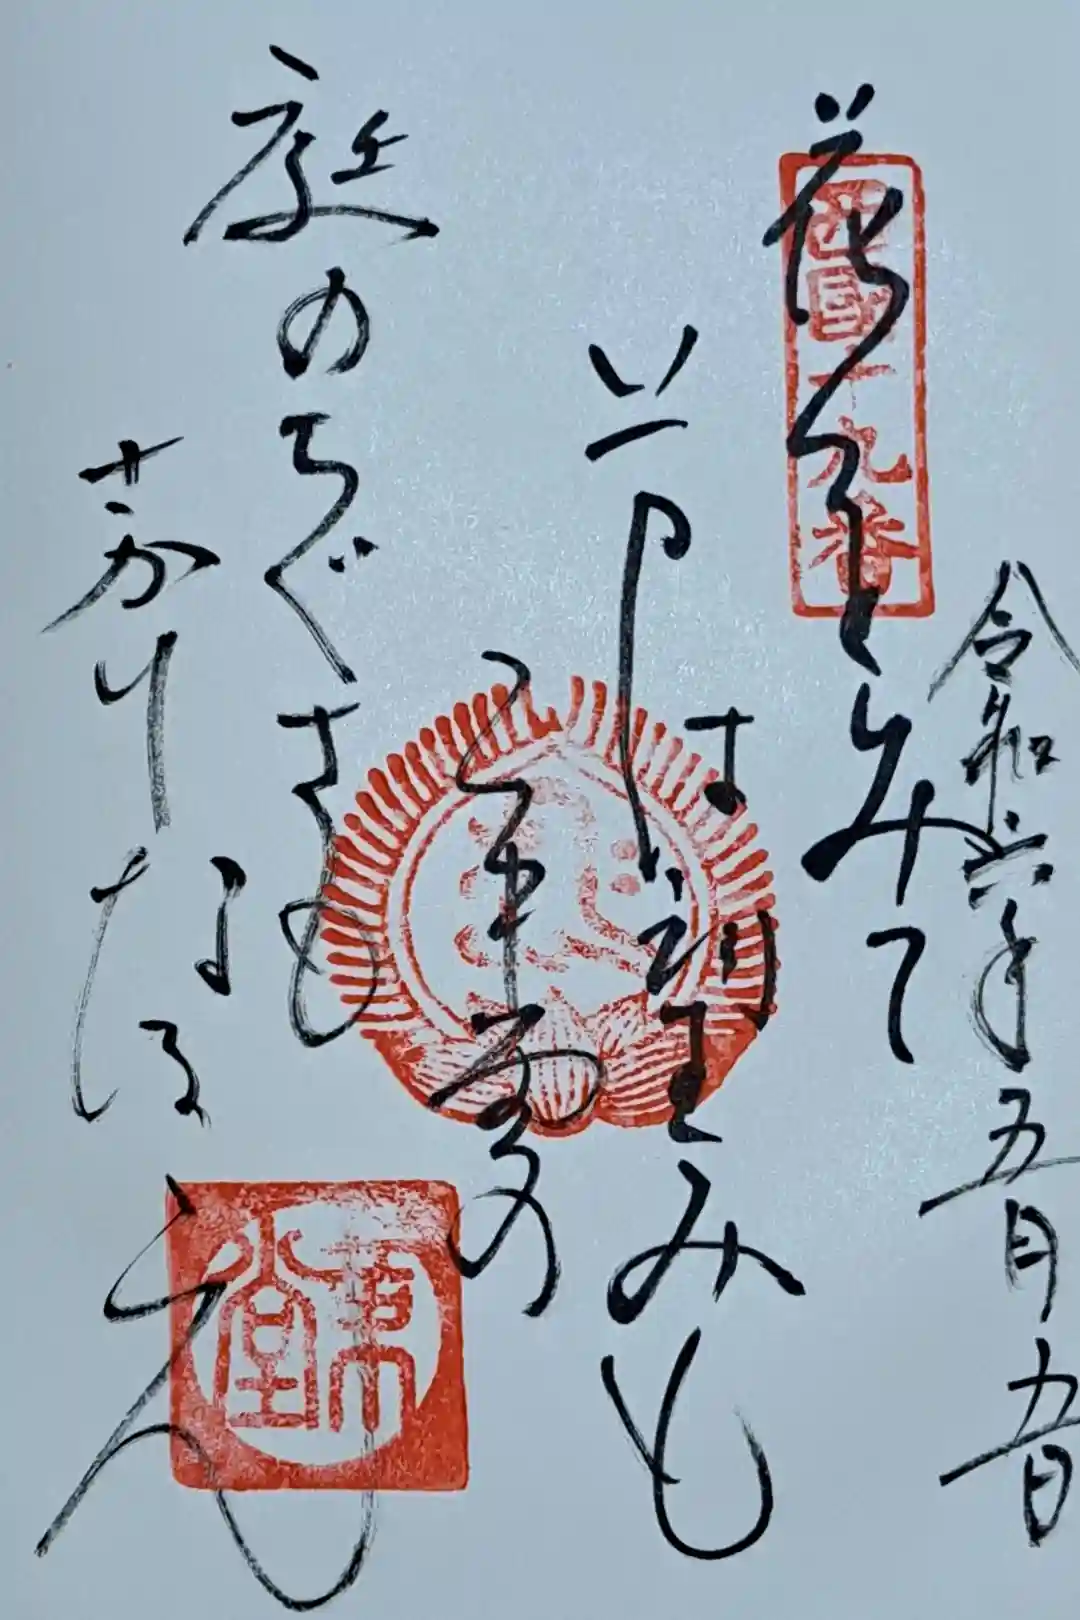 令和六年五月九日
西国十九番
花をみて
いまはのぞみも
庭のちぐさも
さかりなるらん
革堂